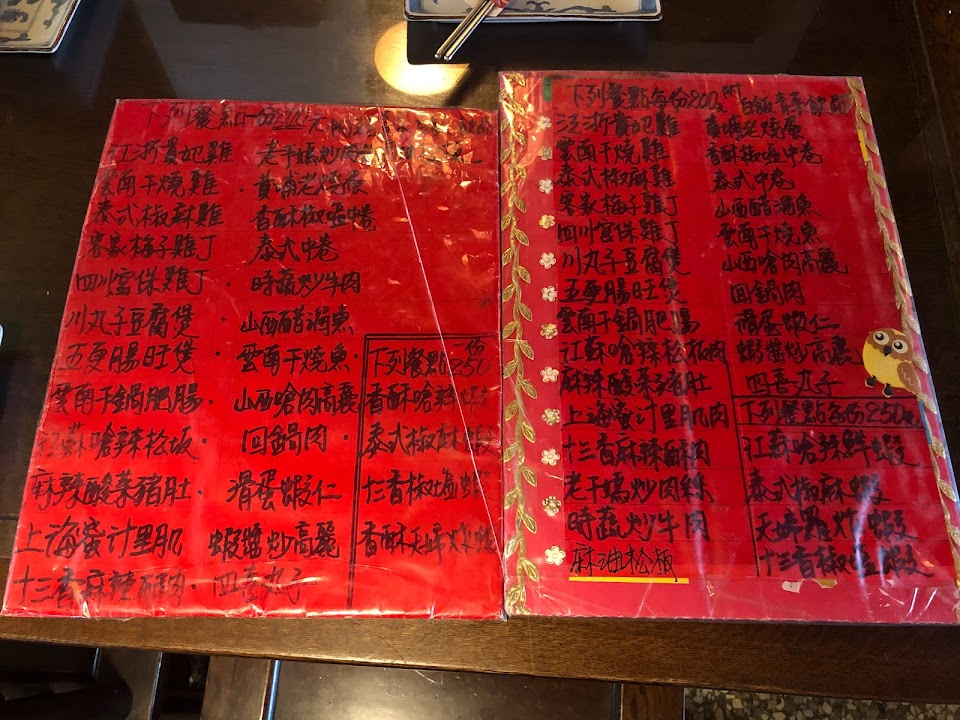 下列餐點一份
江浙貴妃雞
雲南干燒雞
泰式椒麻雞
客家梅子雞丁
四川宮保雞丁
川丸子豆腐煲
五更腸旺煲
雲南干鍋肥腸
江蘇嗆辣松板
麻辣酸菜豬肚
上海蜜汁里肌
十三香麻辣酥肉
老干媽炒肉
黃埔老燒蛋
香酥椒塩中卷
泰式中卷
時蔬炒牛肉
山西醋溜魚
雲南干燒魚
山西嗆肉高麗
回鍋肉
滑蛋蝦仁
蝦醬炒高麗
四喜丸子
下列餐點一份250
香酥嗆辣蝦
泰式椒麻蝦
十三香椒塩蝦
香酥天婦炸蝦
下列餐點每份200元附白飯青菜飲品
江浙貴妃雞
雲南干燒雞
泰式椒麻雞
客家梅子雞丁
四川宮保雞丁
川丸子豆腐煲
五更腸旺煲
雲南干鍋肥腸
江蘇嗆辣松板肉
麻辣酸菜豬肚
上海蜜汁里肌肉
十三香麻辣酥肉
老干媽炒肉絲
時蔬炒牛肉
麻油松板
黃埔老燒蛋
香酥椒塩中卷
泰式中卷
山西醋溜魚
雲南干燒魚
山西嗆肉高麗
回鍋肉
滑蛋蝦仁
蝦醬炒高麗
四喜丸子
下列餐點每份250元
江蘇嗆辣鮮蝦
泰式椒麻蝦
天婦羅炸蝦
十三香椒塩蝦